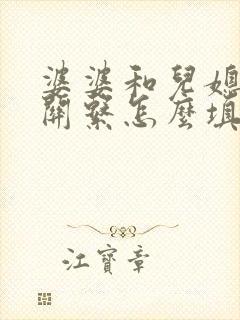 婆婆和兒媳
關繫怎麼填
江寶章